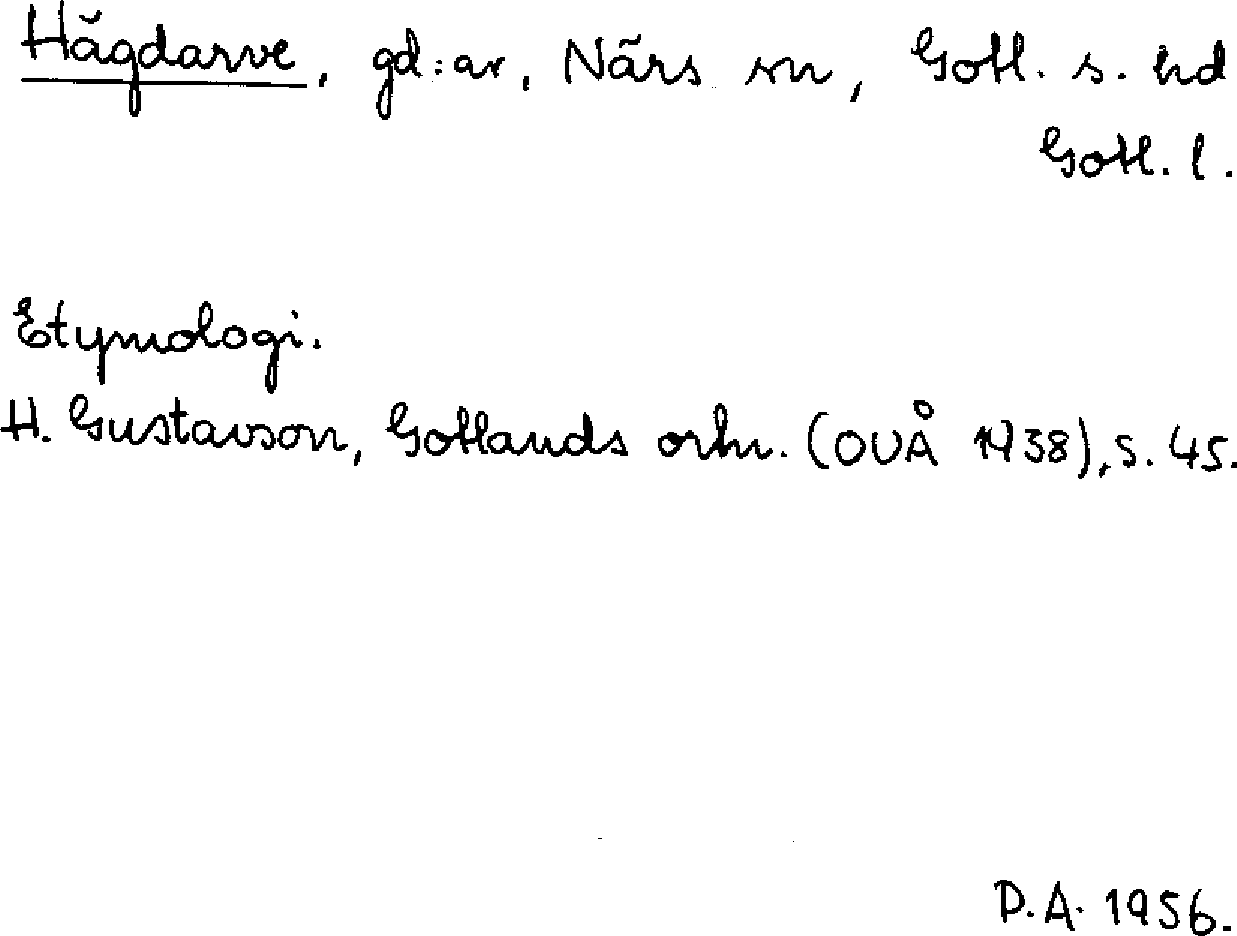 Hägdarve, gd:ar, Närs sn, Gotl. s. hd
Gotl. l.
Etymologi.
H. Gustavson, Gotlands ortn. (OUÅ 1938), s. 45.
P.A. 1956.